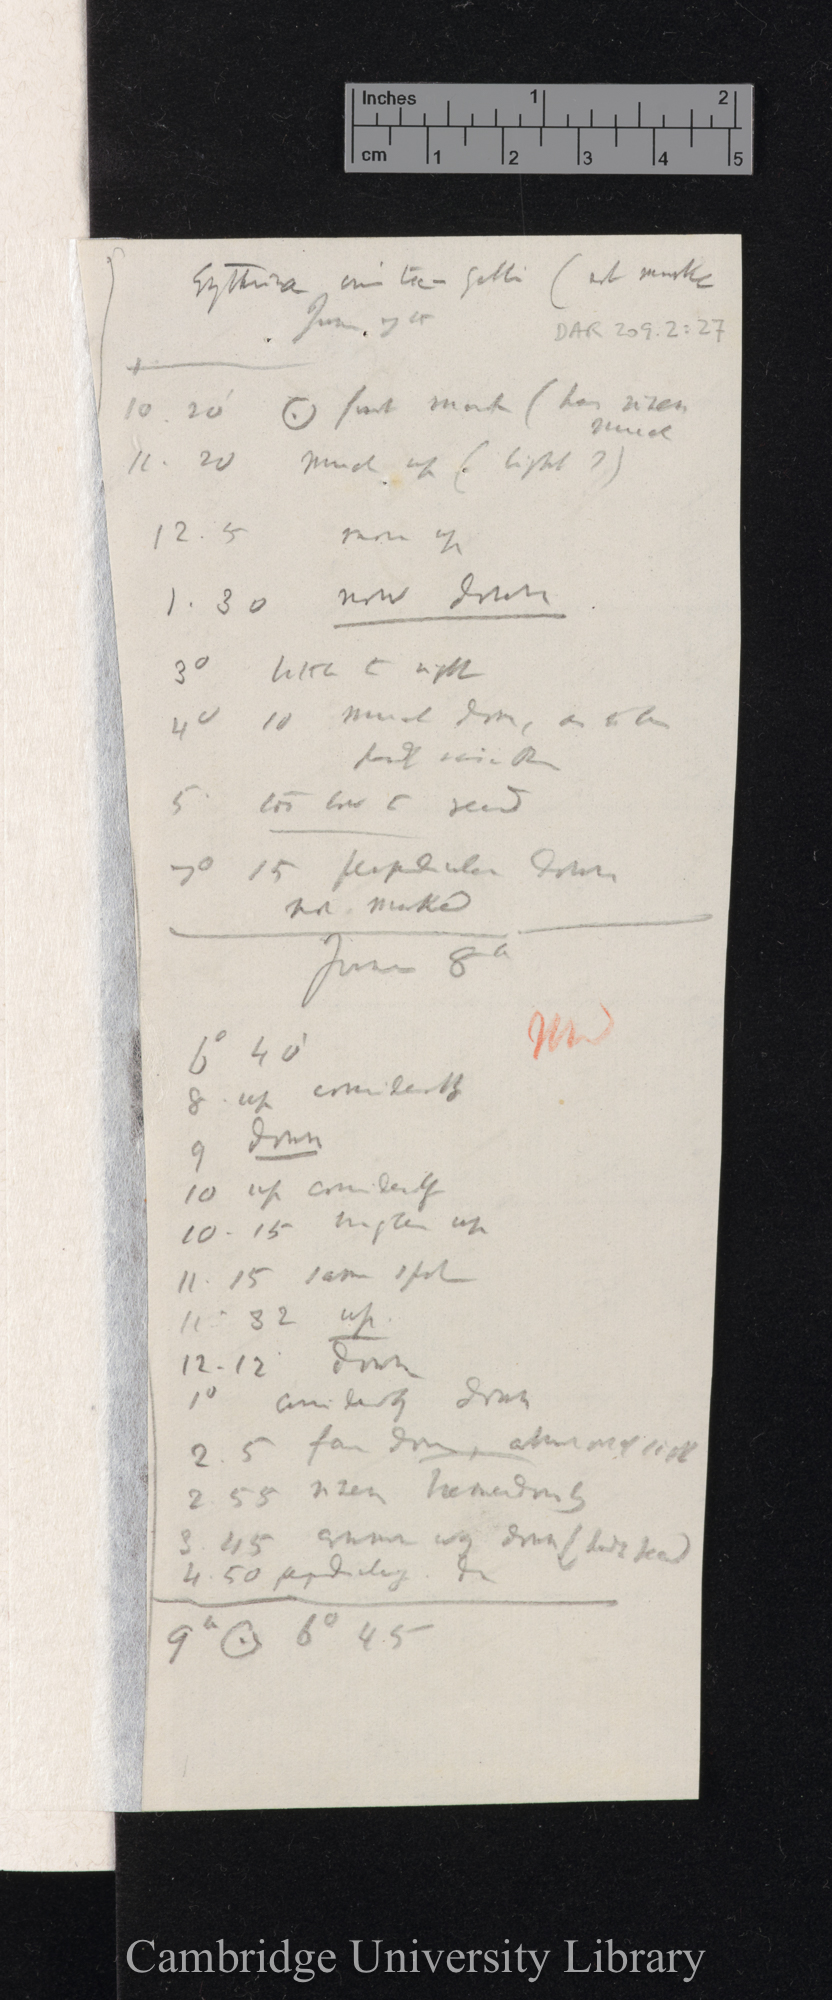 Inches 1 2
cm 1 2 3 4 5
Erythrina crista galli (not
June 7th
DAR 209.2:27
10 20' ⊙ first mark (has risen
much
11. 20 much up (light?)
12. 5 more up
1. 30 now down
3° little to right
4° 10 much down,
5. too low to
7° 15 perpendicular down
not marked
June 8th
6° 40'
8 up considerably
9 down
10 up considerably
10. 15 higher up
11. 15 same spot
11. 32 up.
12. 12 down
1° considerably down
2. 5 far down,
2 55 risen tremendously
3. 45 down
4. 50
9th ⊙ 6° 45
Cambridge University Library